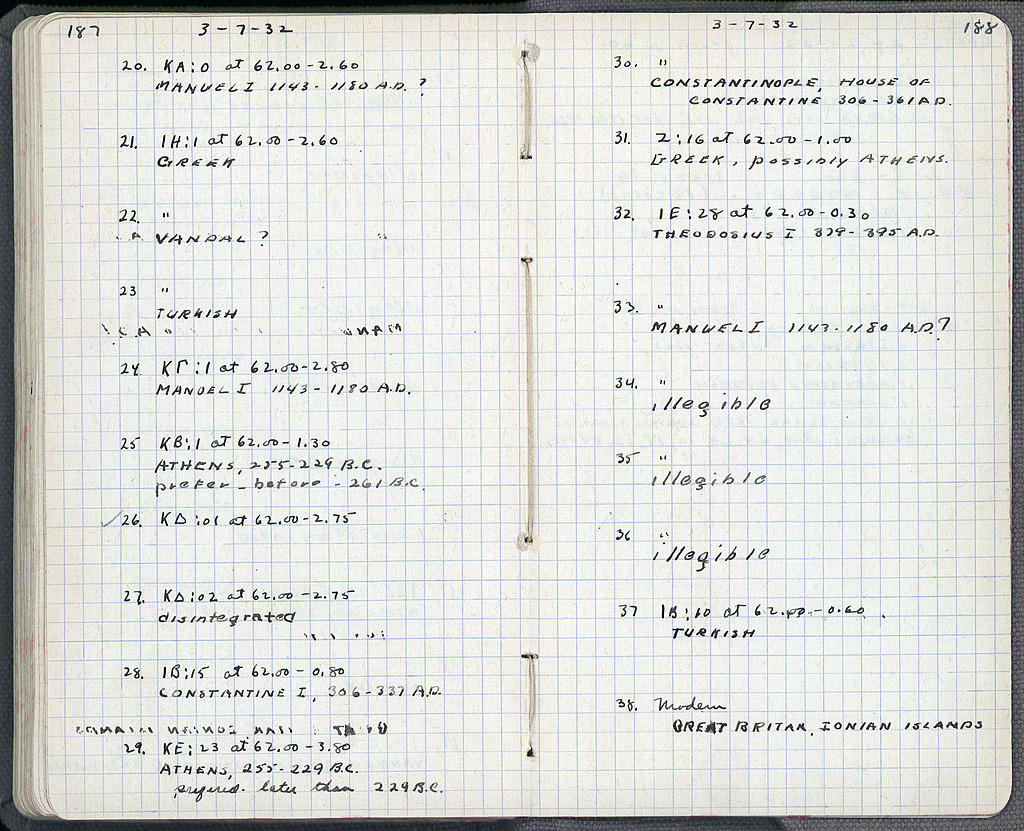 187
3-7-32
20. KA:0 at 62.00-2.60
MANUEL I 1143-1180 A.D.?
21. IH:1 at 62.00-2.60
GREEK
22. "
VANDAL?
23 "
TURKISH
24 KΓ:1 at 62.00-2.80
MANUEL I 1143-1180 A.D.
25 KB:1 at 62.00-1.30
ATHENS, 255-229 B.C.
prefer before - 261 B.C.
✓26. KΔ:01 at 62.00-2.75
27. KΔ:02 at 62.00-2.75
disintegrated
28. IB:15 at 62.00-0.80
CONSTANTINE I, 306-337 A.D.
29. KE:23 at 62.00-3.80
ATHENS, 255-229 B.C.
later than 229 B.C.
3-7-32
188
30. "
CONSTANTINOPLE, HOUSE OF
CONSTANTINE 306-361 A.D.
31. Z:16 at 62.00-1.00
GREEK, possibly ATHENS.
32. IE:28 at 62.00-0.30
THEODOSIUS I 379-395 A.D.
33. "
MANUEL I 1143-1180 A.D.?
34. "
illegible
35 "
illegible
36 "
illegible
37 IB:10 at 62.00-0.60
TURKISH
38. Modern
GREAT BRITAN, IONIAN ISLANDS